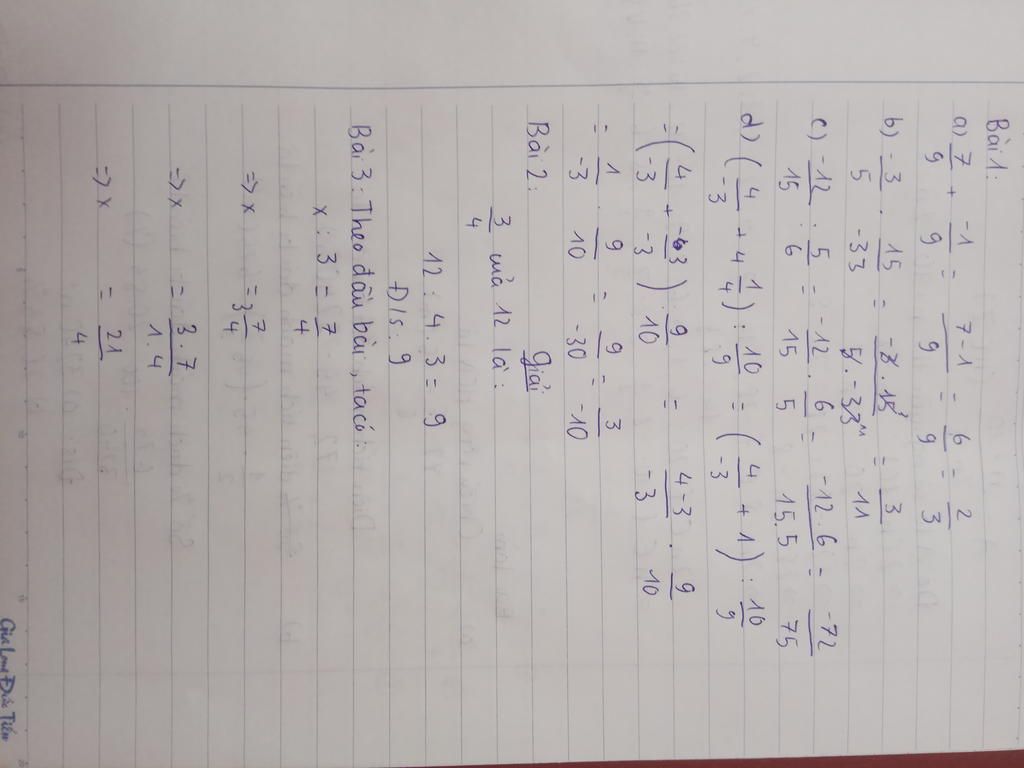 Bài 1:
a) 7/9 + -1/9 = 7-1/9 = 6/9 = 2/3
b) -3/5 . 15/-33 = -3.15/5.-33 = 3/11
c) -12/15 : 5/6 = -12/15 . 6/5 = -12.6/15.5 = -72/75
d) (4/-3 + 4 1/4) : 10/9 = (4/-3 + 1) : 10/9
= (4/-3 + -3/-3) . 9/10 = 4-3/-3 . 9/10
= 1/-3 . 9/10 = 9/-30 = 3/-10
Bài 2: Giải
3/4 của 12 là:
12 : 4 . 3 = 9
Đ/s: 9
Bài 3: Theo đầu bài, ta có:
x : 3 = 7/4
=> x = 3 7/4
=> x = 3.7/1.4
=> x = 21/4